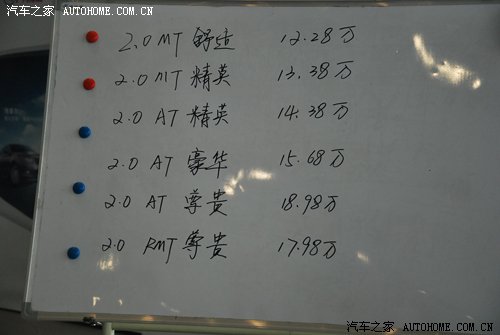 汽车之家 AUTOHOME.COM.CN
2.0 MT 舒适 12.28万
2.0 MT 精英 13.38万
2.0 AT 精英 14.38万
2.0 AT 豪华 15.68万
2.0 AT 尊贵 18.98万
2.0 RMT 尊贵 17.98万
汽车之家 AUTOHOME.COM.CN